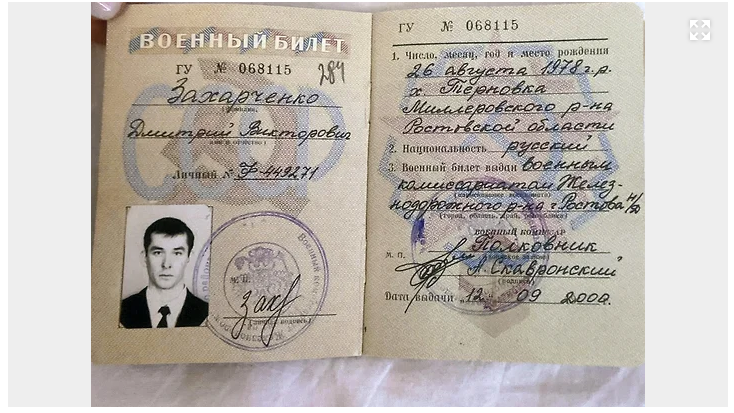 ВОЕННЫЙ БИЛЕТ
ГУ № 068115
284
Захарченко
(фамилия,
Дмитрий Викторович
имя и отчество)
Личный № Ф-449271
М. П.
Зах
(личная подпись)
СССР
ГУ № 068115
1. Число, месяц, год и место рождения
26 августа 1978 г.р.
х. Терновка
Миллеровского р-на
Ростовской области
2. Национальность русский
3. Военный билет выдан военным
(наименование военкомата)
комиссариатом Желез-
нодорожного р-на г. Ростова н/Д
(город, область, край, республика)
ВОЕННЫЙ КОМИССАР
Полковник
М. П.
(воинское звание)
А. Скавронский
(подпись)
Дата выдачи „12“ 09 2000.